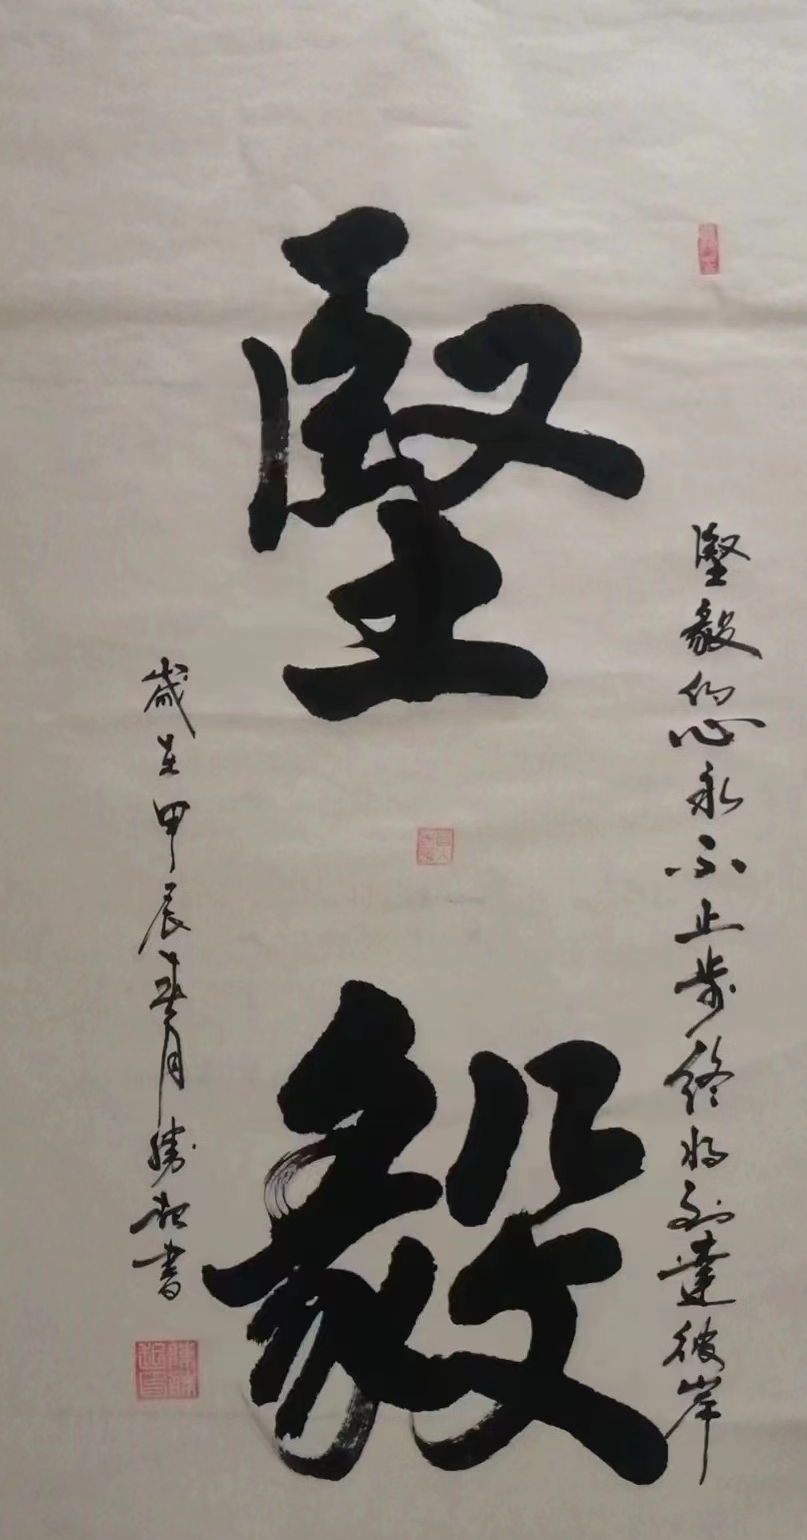 堅毅
堅毅的心永不止步終将到達彼岸
歲在甲辰春月勝起書